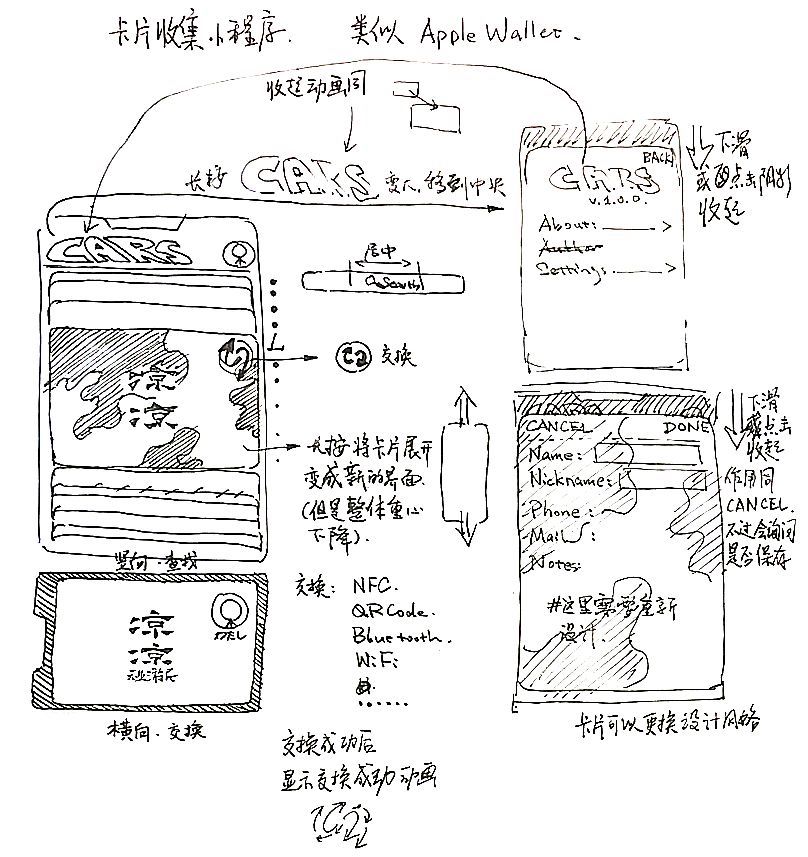 卡片收集小程序. 类似 Apple Wallet.
收起动画同
长按 CARS 变大,移到中央
CARS
居中
Search
交换
凉
凉
长按将卡片展开
变成新的界面.
(但是整体重心
下降).
竖向·查找
凉
凉
横向·交换
交换: NFC.
QR Code.
Bluetooth.
WiFi
......
交换成功后
显示交换成功动画
BACK
CARS
v.1.0.0.
About: >
Author
Settings >
下滑
或点击阴影
收起
CANCEL DONE
Name:
Nickname:
Phone:
Mail:
Notes:
#这里需要重新
设计.
下滑
或点击
收起
作用同
CANCEL.
不过会询问
是否保存
卡片可以更换设计风格